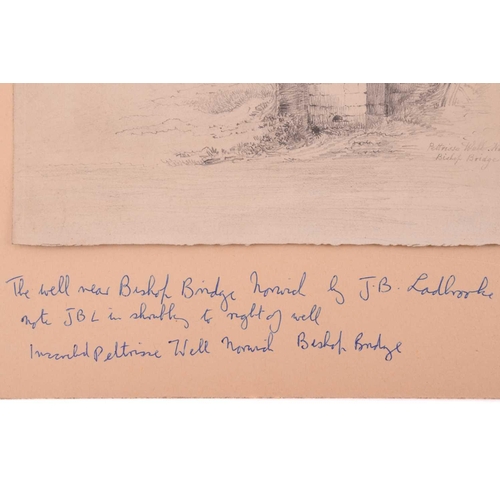 Bishop Bridge
The well near Bishop Bridge Norwich by J.B. Ladbrooke
note JBL in shrubbery to right of well
Inscribed Peltrisse Well Norwich Bishop Bridge